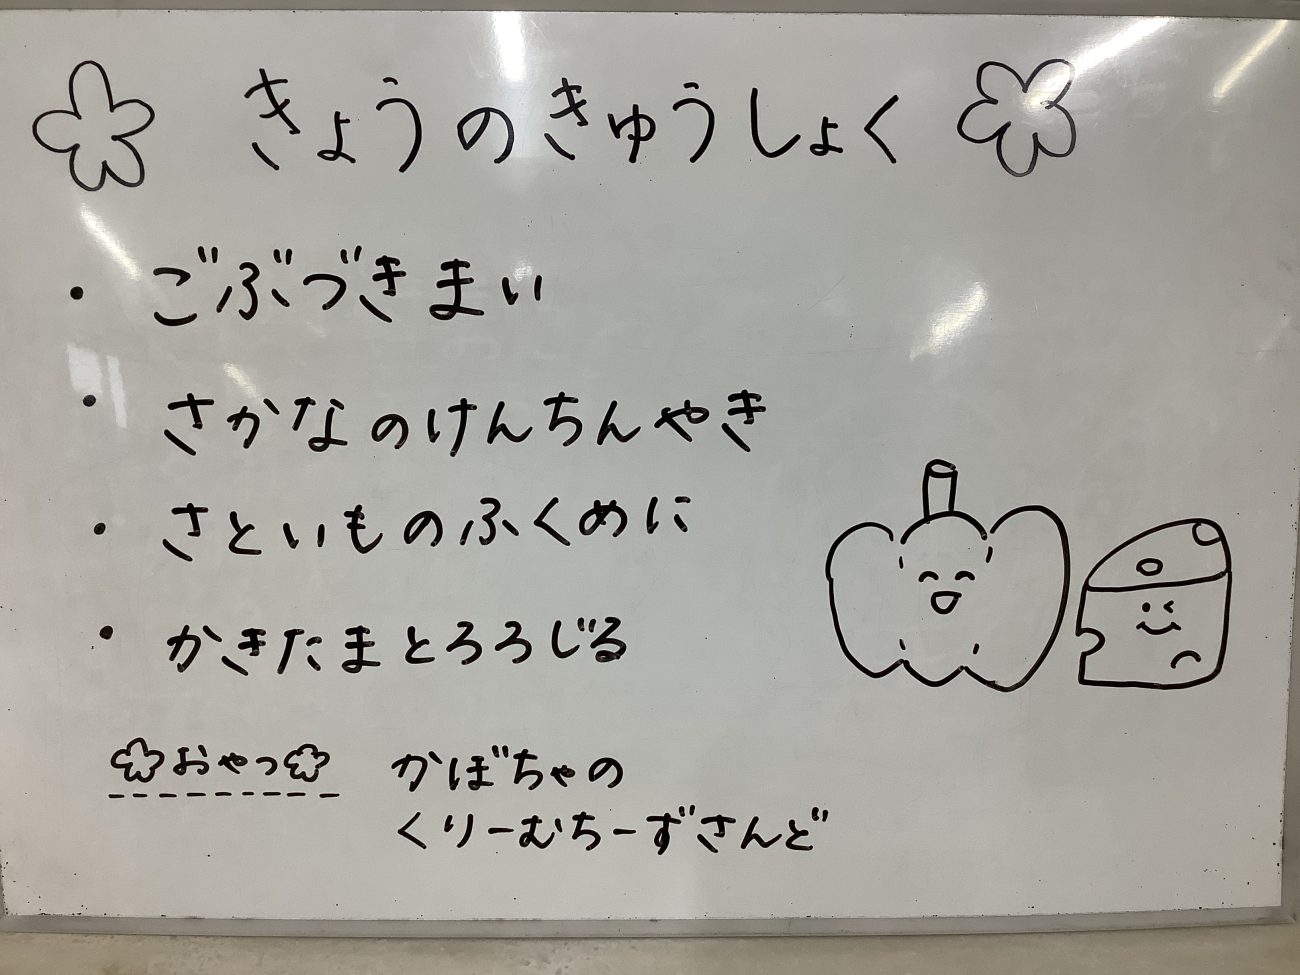 きょうのきゅうしょく
・ごぶづきまい
・さかなのけんちんやき
・さといものふくめに
・かきたまとろろじる
おやつ かぼちゃの
くりーむちーずさんど